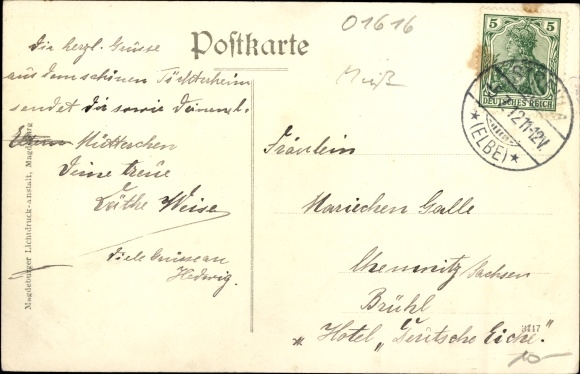 01616
Postkarte
5 5
DEUTSCHES REICH
12.11-12V.
* (ELBE) *
Die herzl. Grüsse
aus dem schönen Töchterheim
sendet dir sowie deinem l.
Eltern Mütterchen
deine treue
Käthe Weise
Viele Grüsse an
Hedwig.
Magdeburger Lichtdruck-anstalt, Magdeburg
Fräulein
Mariechen Galle
Chemnitz Sachsen
Brühl
Hotel „Deutsche Eiche."
3417
10-